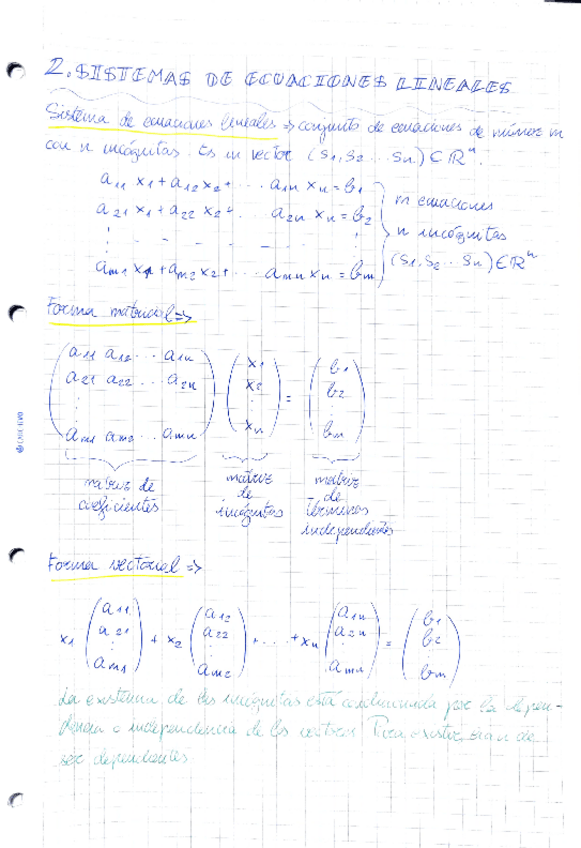 2. SISTEMAS DE ECUACIONES LINEALES
Sistema de ecuaciones lineales => conjunto de ecuaciones de número m
con n incógnitas. Es un vector (S1, S2 ... Sn) ∈ ℝⁿ.
a11 x1 + a12 x2 + ... a1n xn = b1
a21 x1 + a22 x2 + ... a2n xn = b2
am1 x1 + am2 x2 + ... amn xn = bm
m ecuaciones
n incógnitas
(S1, S2 ... Sn) ∈ ℝⁿ
Forma matricial =>
a11 a12 ... a1n
a21 a22 ... a2n
am1 am2 ... amn
x1
x2
xn
=
b1
b2
bm
matriz de
coeficientes
matriz
de
incógnitas
matriz
de
términos
independientes
Forma vectorial =>
x1 (a11 a21 ⋮ am1) + x2 (a12 a22 ⋮ am2) + ... + xn (a1n a2n ⋮ amn) = (b1 b2 ⋮ bm)
La existencia de las incógnitas está condicionada por la depen-
dencia o independencia de los vectores. Para existir, han de
ser dependientes